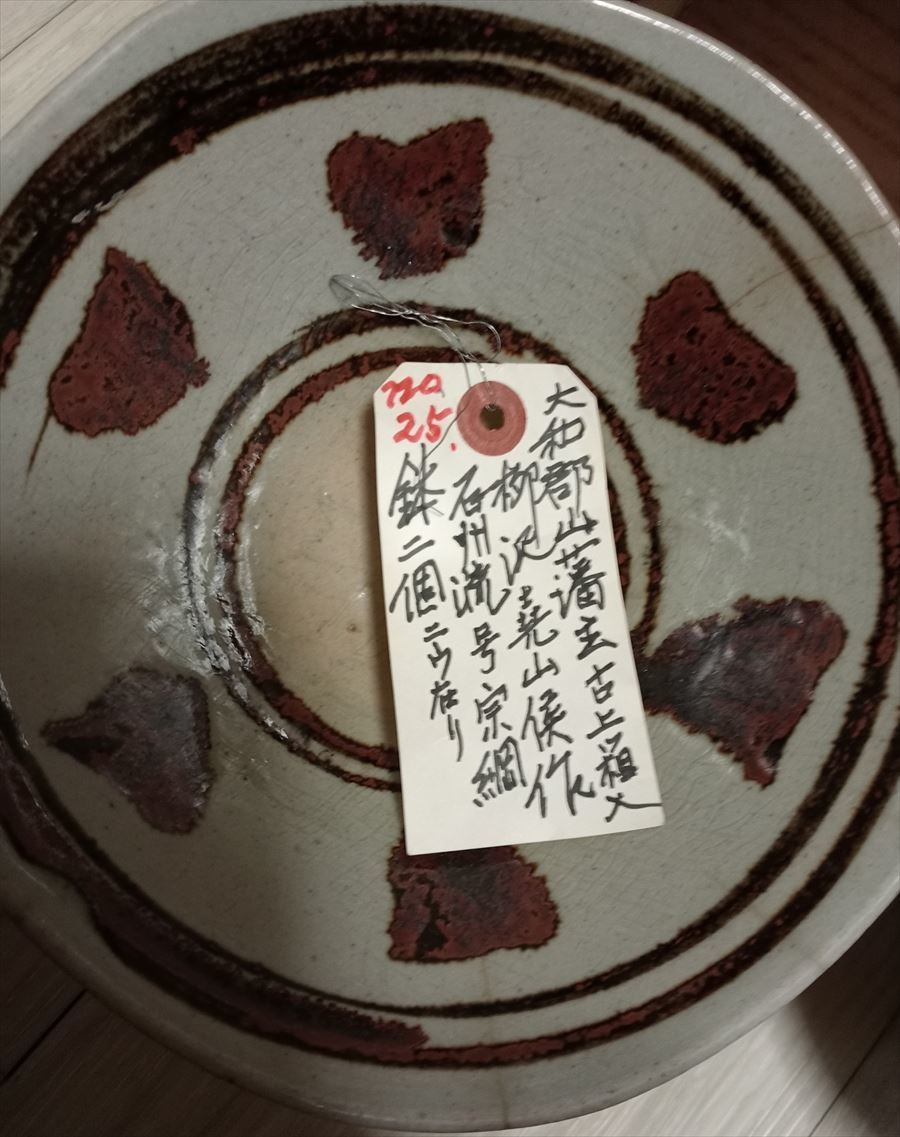 no
25.
大和郡山藩主古上祖父
柳沢尭山侯作
石州流号宗綱
鉢二個ニウ在リ